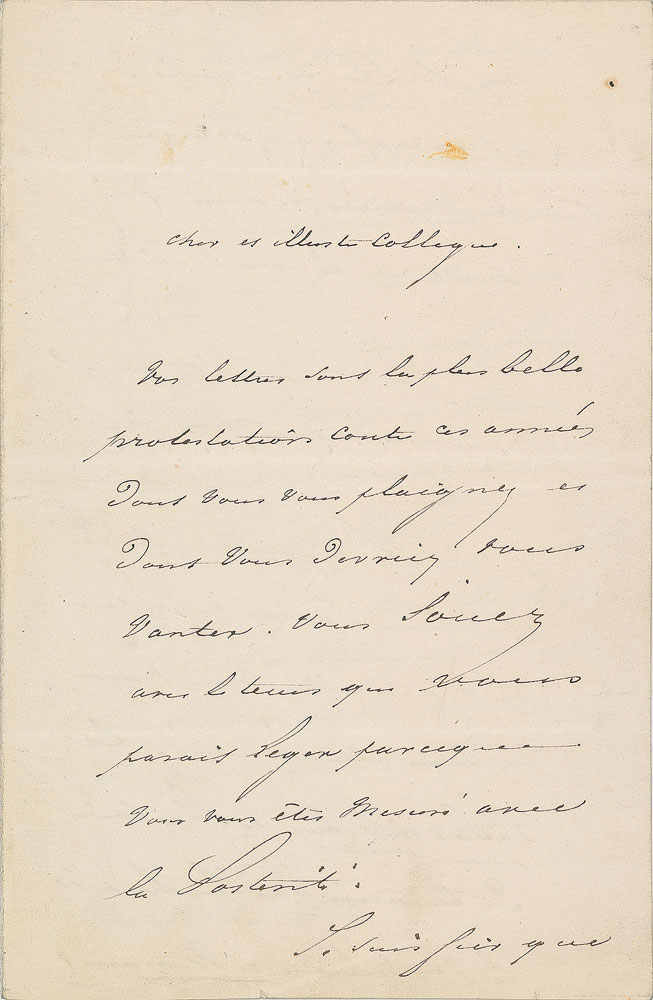 cher et illustre Collegue.
Vos lettres sont la plus belle
protestation contre ces années
Dont Vous Vous plaignez et
Dont Vous Devriez vous
Vanter. Vous Jouez
avec le tems qui vous
parait leger parceque
Vous vous êtes Mesuré avec
la Postérité.
Je suis fier que